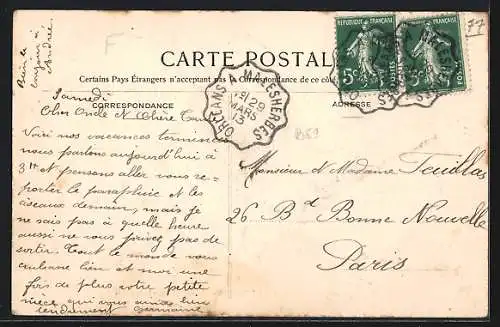 F
77
RÉPUBLIQUE FRANÇAISE
5c
POSTES
CARTE POSTALE
Certains Pays Étrangers n'acceptent pas la Correspondance de ce côté
CORRESPONDANCE
ADRESSE
ORLÉANS A MALESHERBES
29
MARS
13
Samedi
Cher Oncle et Chère Tante
Voici nos vacances terminées
nous partons aujourd'hui à
3h et pensons aller vous re-
porter le parapluie et les
ciseaux demain, mais je
ne sais pas à quelle heure
aussi ne vous privez pas de
sortir. Tout le monde vous
embrasse bien et moi une
fois de plus votre petite
nièce qui vous aime bien
tendrement Germaine
Monsieur et Madame Feuillas
26 Bd Bonne Nouvelle
Paris